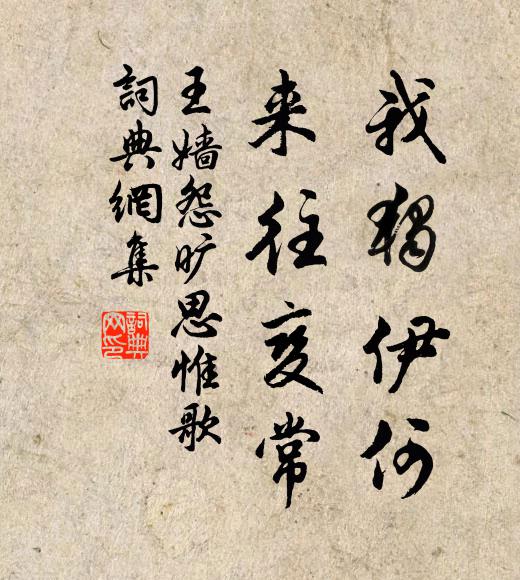 我獨伊何
来往变常
王嬙怨旷思惟歌
詞典網集
詞典
网印